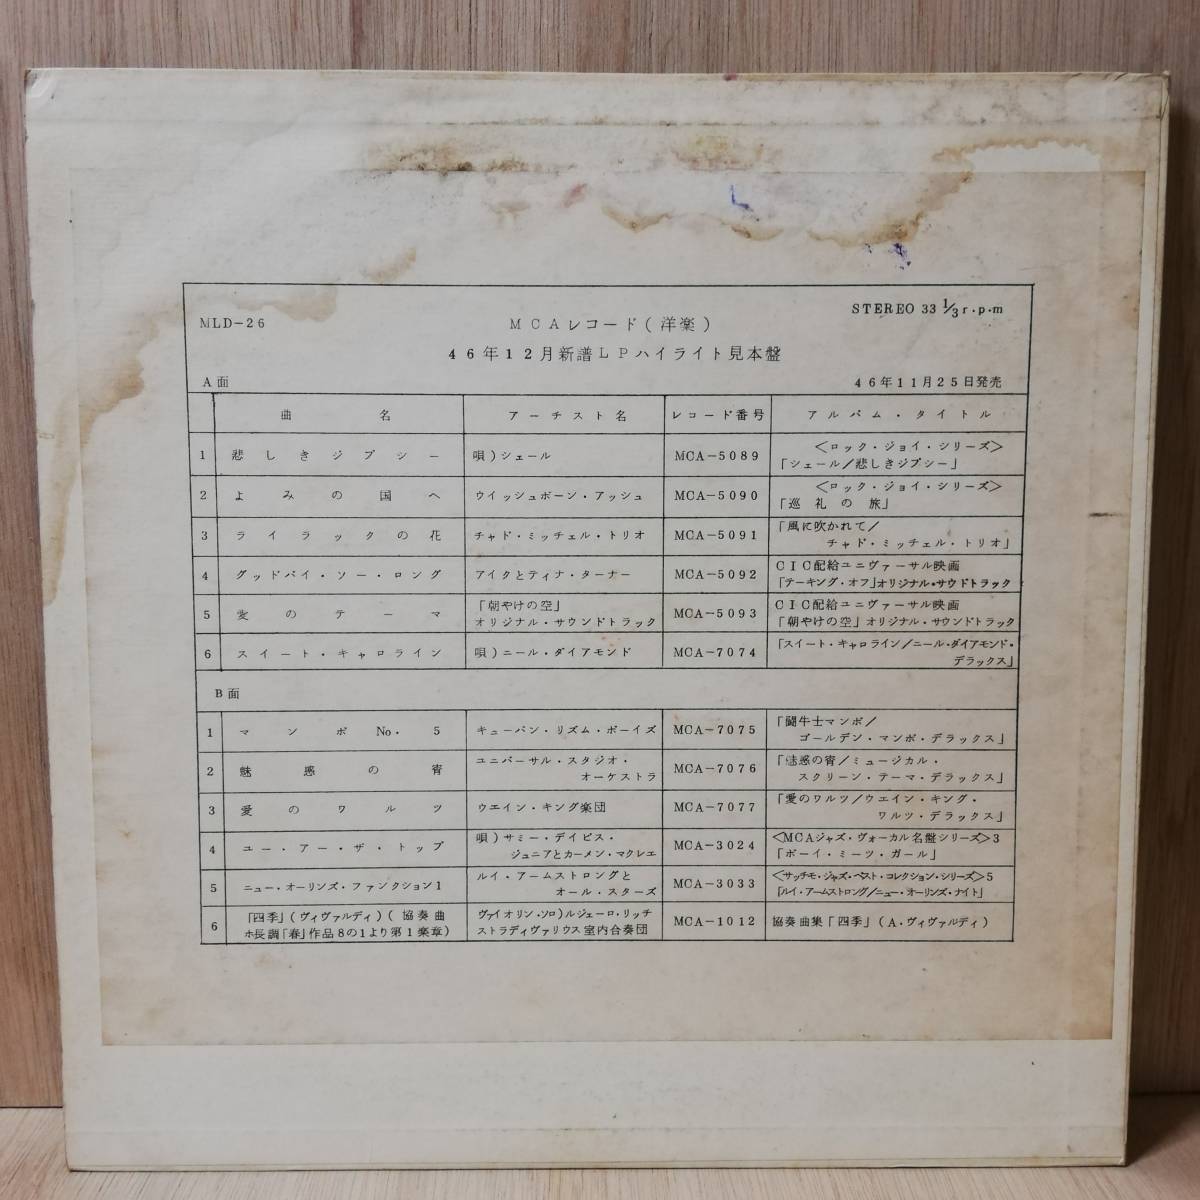 MLD-26
STEREO 33 1/3 r.p.m
MCAレコード(洋楽)
46年12月新譜LPハイライト見本盤
A面
46年11月25日発売
曲名 アーチスト名 レコード番号 アルバム・タイトル
1 悲しきジプシー 唄)シェール MCA-5089 <ロック・ジョイ・シリーズ>
「シェール/悲しきジプシー」
2 よみの国へ ウイッシュボーン・アッシュ MCA-5090 <ロック・ジョイ・シリーズ>
「巡礼の旅」
3 ライラックの花 チャド・ミッチェル・トリオ MCA-5091 「風に吹かれて/
チャド・ミッチェル・トリオ」
4 グッドバイ・ソー・ロング アイクとティナ・ターナー MCA-5092 CIC配給ユニヴァーサル映画
「テーキング・オフ」オリジナル・サウドトラック
5 愛のテーマ 「朝やけの空」
オリジナル・サウンドトラック MCA-5093 CIC配給ユニヴァーサル映画
「朝やけの空」オリジナル・サウンドトラック
6 スイート・キャロライン 唄)ニール・ダイアモンド MCA-7074 「スイート・キャロライン/ニール・ダイアモンド・
デラックス」
B面
1 マンボNo.5 キューバン・リズム・ボーイズ MCA-7075 「闘牛士マンボ/
ゴールデン・マンボ・デラックス」
2 魅惑の宵 ユニバーサル・スタジオ・
オーケストラ MCA-7076 「魅惑の宵/ミュージカル・
スクリーン・テーマ・デラックス」
3 愛のワルツ ウエイン・キング楽団 MCA-7077 「愛のワルツ/ウエイン・キング・
ワルツ・デラックス」
4 ユー・アー・ザ・トップ 唄)サミー・デイビス・
ジュニアとカーメン・マクレエ MCA-3024 <MCAジャズ・ヴォーカル名盤シリーズ>3
「ボーイ・ミーツ・ガール」
5 ニュー・オーリンズ・ファンクション1 ルイ・アームストロングと
オール・スターズ MCA-3033 <サッチモ・ジャズ・ベスト・コレクション・シリーズ>5
「ルイ・アームストロング/ニュー・オーリンズ・ナイト」
6 「四季」(ヴィヴァルディ)(協奏曲
ホ長調「春」作品8の1より第1楽章) ヴァイオリン・ソロ)ルジェーロ・リッチ
ストラディヴァリウス室内合奏団 MCA-1012 協奏曲集「四季」(A・ヴィヴァルディ)